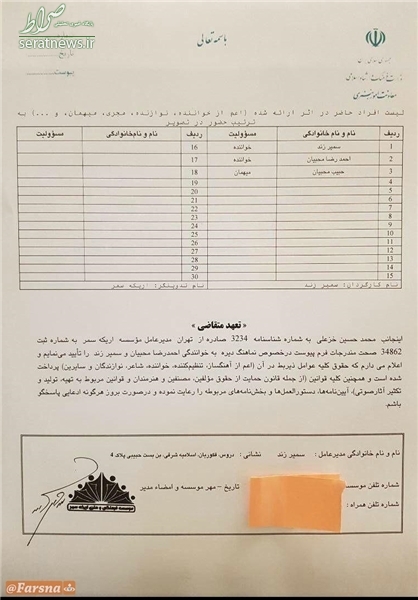 پایگاه خبری تحلیلی
صراط
seratnews.ir
تاریخ
پیوست
باسمه تعالی
لیست افراد حاضر در اثر ارائه شده (اعم از خواننده، نوازنده، مجری، میهمان، و ...) به
ترتیب حضور در تصویر
ردیف نام و نام خانوادگی مسؤولیت ردیف نام و نام‌خانوادگی مسؤولیت
1 سمیر زند خواننده 16
2 احمد رضا محبیان خواننده 17
3 حبیب محبیان میهمان 18
4 19
5 20
6 21
7 22
8 23
9 24
10 25
11 26
12 27
13 28
14 29
15 30
نام کارگردان: سمیر زند نام تدوینگر: اریکه سمر
« تعهد متقاضی »
اینجانب محمد حسین خزعلی به شماره شناسنامه 3234 صادره از تهران مدیرعامل مؤسسه اریکه سمر به شماره ثبت
34862 صحت مندرجات فرم پیوست درخصوص نماهنگ دیره به خوانندگی احمدرضا محبیان و سمیر زند را تأیید می‌نمایم و
اعلام می دارم که حقوق کلیه عوامل ذیربط در آن (اعم از آهنگساز، تنظیم‌کننده، خواننده، شاعر، نوازندگان و سایرین) پرداخت
شده است و همچنین کلیه قوانین (از جمله قانون حمایت از حقوق مؤلفین، مصنفین و هنرمندان و قوانین مربوط به تهیه، تولید و
تکثیر آثارصوتی)، آیین‌نامه‌ها، دستورالعمل‌ها و بخش‌نامه‌های مربوطه را رعایت نموده و درصورت بروز هرگونه ادعایی پاسخگو
باشم.
نام و نام خانوادگی مدیرعامل : سمیر زند نشانی : دروس، فکوریان، اسلامیه شرقی، بن بست حبیبی پلاک 4
شماره تلفن موسسه
تاریخ – مهر موسسه و امضاء مدیر
شماره تلفن همراه :
@Farsna